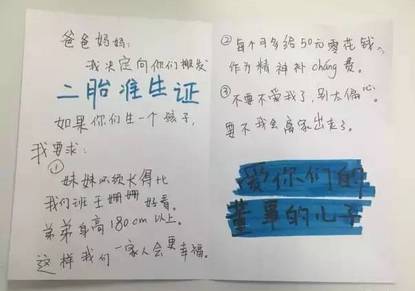 爸爸妈妈:
我决定向你们搬发
二胎准生证
如果你们生一个孩子,
我要求:
①
妹妹必须长得比
我们班王姗姗好看。
弟弟身高180cm以上。
这样我们一家人会更幸福。
②每个月多给50元零花钱,
作为精神补chang费。
③不要不爱我了,别太偏心。
要不我会离家出走了。
爱你们的
董事的儿子